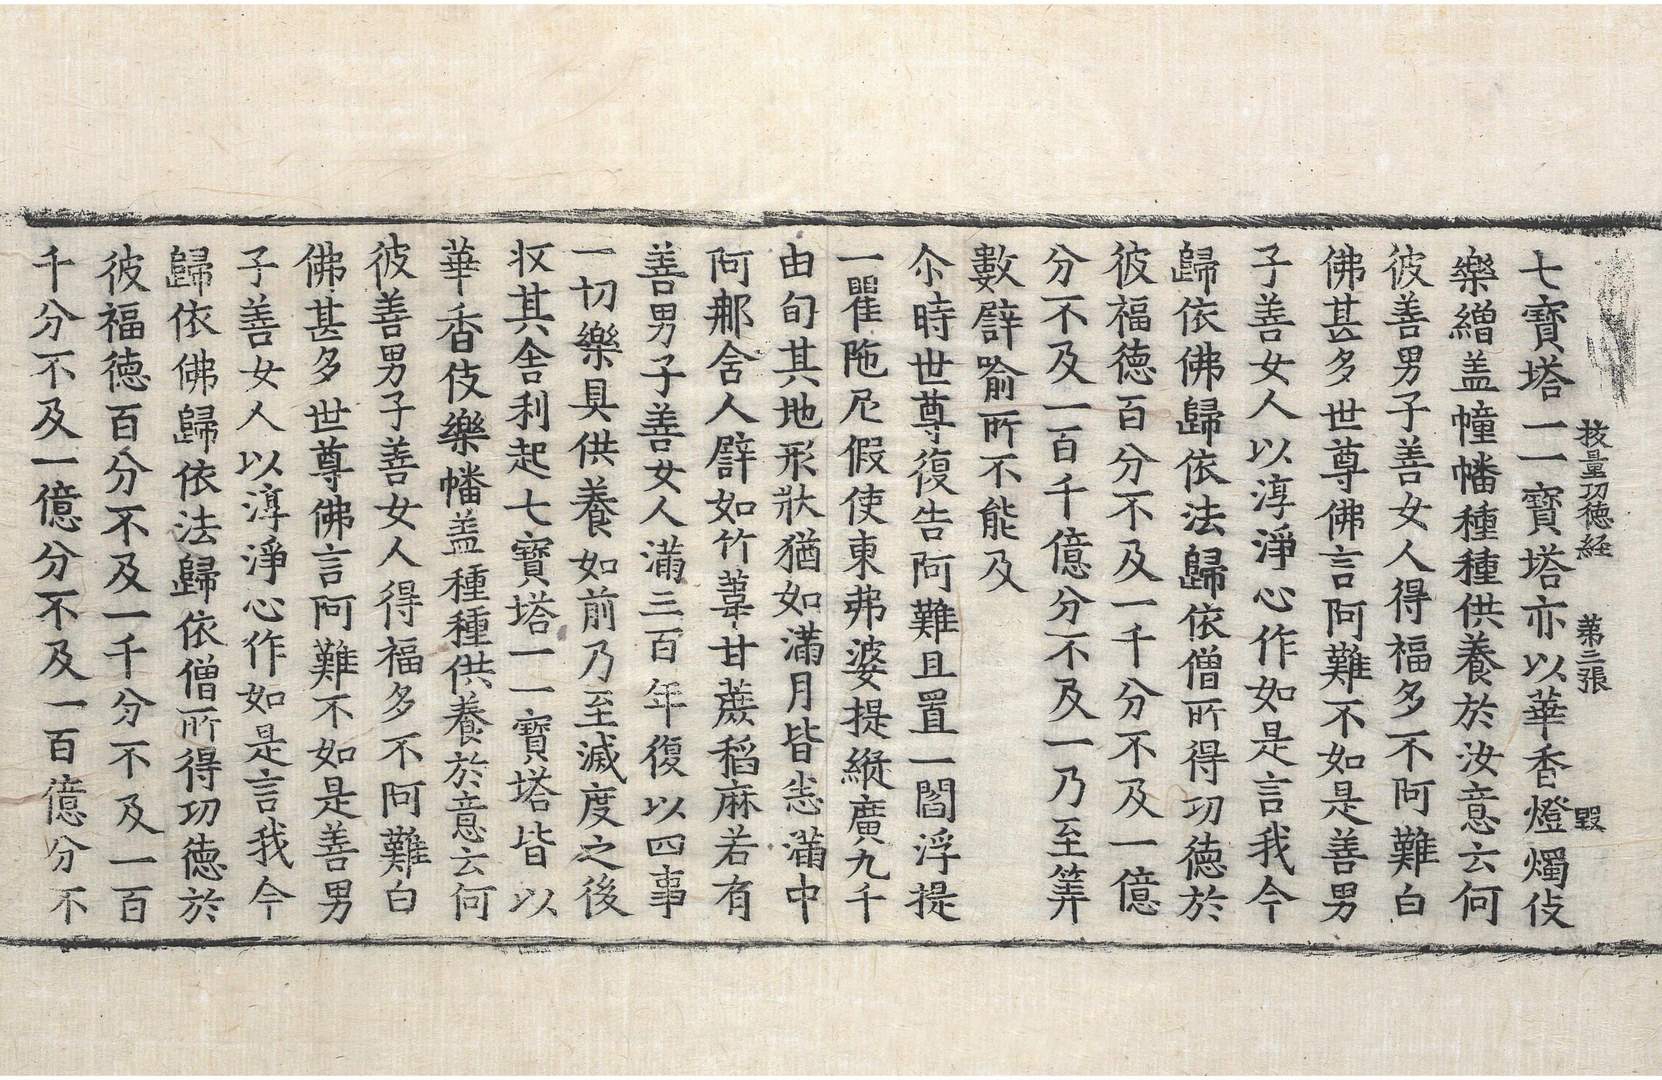 挍量功徳経 苐二張 毀
七寶塔一一寶塔亦以華香燈燭伎
樂繒盖幢幡種種供養於汝意云何
彼善男子善女人得福多不阿難白
佛甚多世尊佛言阿難不如是善男
子善女人以淳淨心作如是言我今
歸依佛歸依法歸依僧所得功徳於
彼福徳百分不及一千分不及一億
分不及一百千億分不及一乃至筭
數譬喻所不能及
尒時世尊復告阿難且置一閻浮提
一瞿陁尼假使東弗婆提縱廣九千
由旬其地形狀猶如滿月皆悉滿中
阿那含人譬如竹葦甘蔗稻麻若有
善男子善女人滿三百年復以四事
一切樂具供養如前乃至滅度之後
収其舍利起七寶塔一一寶塔皆以
華香伎樂幡盖種種供養於意云何
彼善男子善女人得福多不阿難白
佛甚多世尊佛言阿難不如是善男
子善女人以淳淨心作如是言我今
歸依佛歸依法歸依僧所得功徳於
彼福徳百分不及一千分不及一百
千分不及一億分不及一百億分不